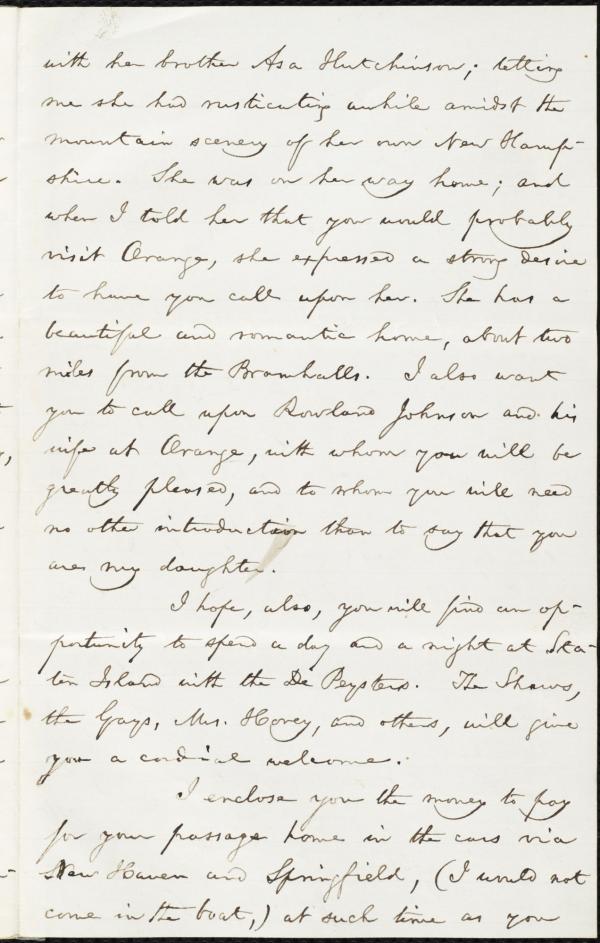 with her brother Asa Hutchinson; telling
me she had rusticating awhile amidst the
mountain scenery of her own New Hamp-
shire. She was on her way home; and
when I told her that you would probably
visit Orange, she expressed a strong desire
to have you call upon her. She has a
beautiful and romantic home, about two
miles from the Bramhalls. I also want
you to call upon Rowland Johnson and his
wife at Orange, with whom you will be
greatly pleased, and to whom you will need
no other introduction than to say that you
are my daughter.
I hope, also, you will find an op-
portunity to spend a day and a night at Sta-
ten Island with the De Peysters. The Shaws,
the Gays, Mrs. Hovey, and others, will give
you a cordial welcome.
I enclose you the money to pay
for your passage home in the cars via
New Haven and Springfield, (I would not
come in the boat,) at such time as you